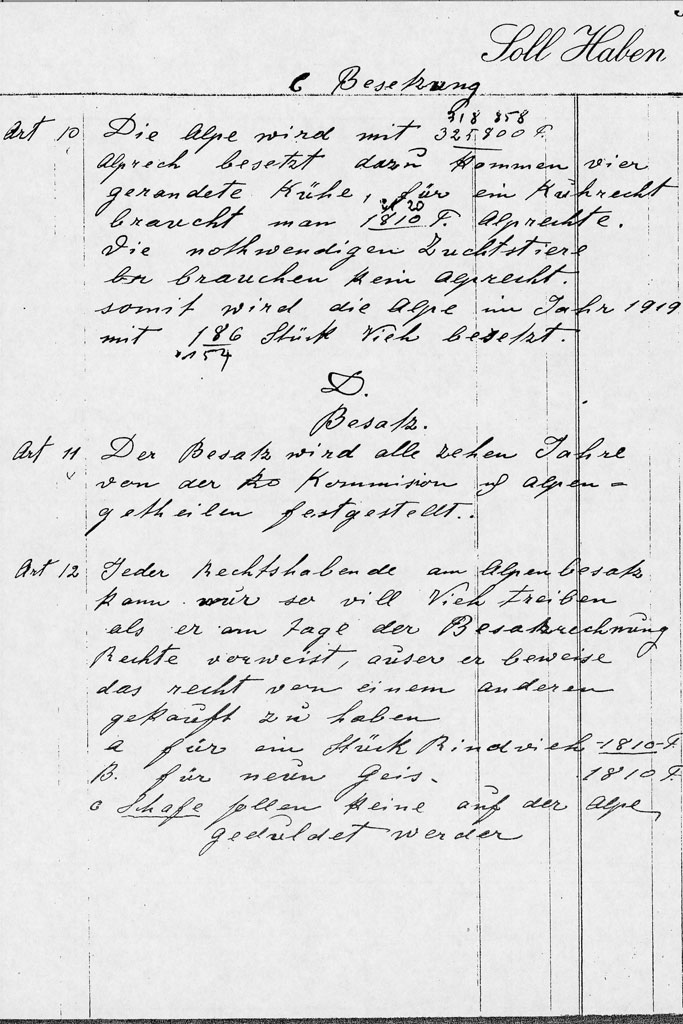 Soll Haben
C Besetzung
318 858
Art 10 Die Alpe wird mit 325.800 F.
Alprech besetzt dazu kommen vier
gerandete Kühe, für ein Kuhrecht
20
braucht man 1810 F. Alprechte.
Die nothwendigen Zuchtstiere
brauchen kein Alprecht.
somit wird die Alpe im Jahr 1919
mit 186 Stück Vieh besetzt.
154
D.
Besatz.
Art 11 Der Besatz wird alle zehen Jahre
von der Ko Kommision u Alpen=
getheilen festgestellt..
Art 12 Jeder Rechtshabende am Alpenbesatz
kann nur so vill Vieh treiben
als er am tage der Besatzrechnung
Rechte vorweist, auser er beweise
das recht von einem anderen
gekauft zu haben
a für ein Stück Rindvieh 1810 F.
B. für neun Geis. 1810 F.
c Schafe sollen keine auf der Alpe
geduldet werder